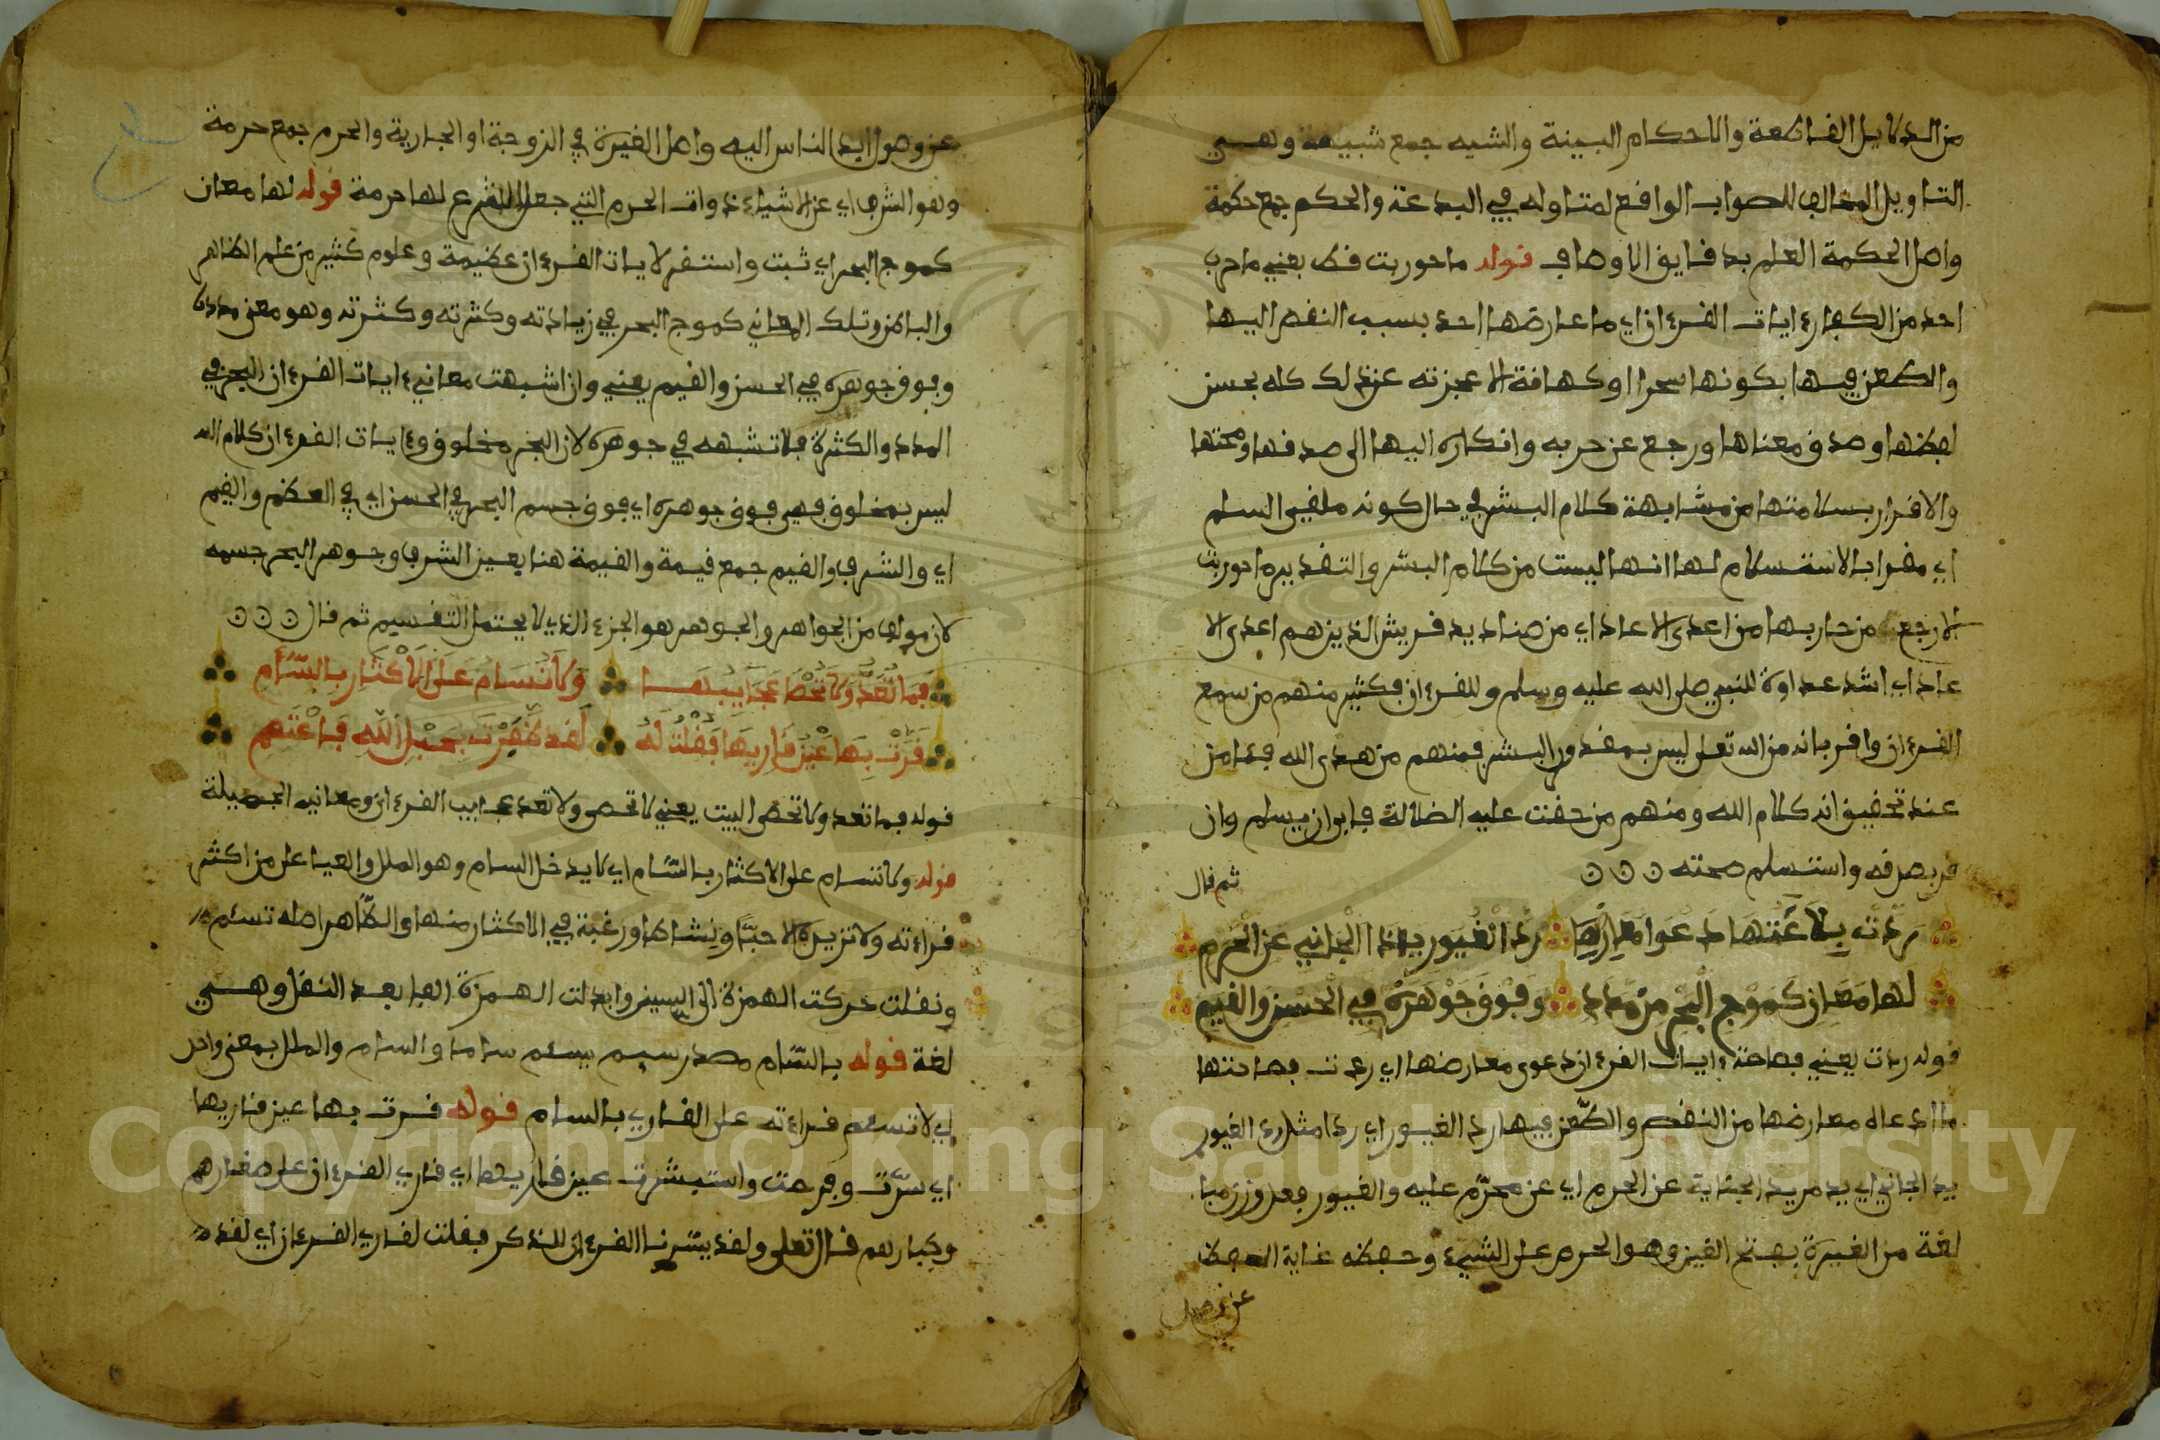 من الدلايل القاطعة والاحكام البينة والشبه جمع شبيهة وهـــي
التاويل المخالف للصواب الواقع لمتاوله في البدعة والحكم جمع حكمة
واصل الحكمة العلم بدقايق الاوصاف قوله ما حوربت قط يعني ما حرب
احد من الكفار ءايات القرءان اي ما عارضها احد بسبب النقص اليها
والطعن فيها بكونها سحرا او كهانة الا عجزته عن ذلك كله بحسن
لفظها وصدق معناها ورجع عن حربه وانكاره اليها الى صدقها وصحتها
والاقرار بسلامتها من مشابهة كلام البشر في حال كونه ملقي السلم
اي مقرا بالاستسلام لها انها ليست من كلام البشر والتقدير ما حوربت
الا رجع من حاربها من اعدى الاعاد اي من صناديد قريش الذين هم اعدى الا
عاد اي اشد عداوة للنبي صلى الله عليه وسلم وللقرءان فكثير منهم من سمع
القرءان واقر بانه من الله تعلى ليس بمقدور البشر فمنهم من هدى الله فئامن
عند تحقيق انه كلام الله ومنهم من حقت عليه الضلالة فابى ان يسلم وان
قر بصدقه واستسلم صحته
ثم قال
ردت بلاغتها دعوا معارضها رد الغيور يد الجاني عن الحرم
لها معان كموج البحر من مدد وفوق جوهره في الحسن والقيم
قوله ردت يعني فصاحة ءايات القرءان دعوى معارضها اي ردت فصاحتها
ما ادعاه معارضها من النقص والطعن فيها رد الغيور اي ردا مثل رد الغيور
يد الجاني اي يد مريد الجناية عن الحرم اي عن محرم عليه والغيور فعول وزن مبا
لغة من الغيرة بفتح الغين وهو الحرص على الشيء وحفظه غاية الحفظ
عن وصول
عن وصول ايد الناس اليه واصل الغيرة في الزوجة او الجارية والحرم جمع حرمة
وهو الشرف اي عن الاشياء ذوات الحرم التي جعل الشرع لها حرمة قوله لها معان
كموج البحر اي ثبت واستقر لايات القرءان عظيمة وعلوم كثير من علم الظاهر
والباطن وتلك المعاني كموج البحر في زيادته وكثرته وكثرته وهو معنى مددا
وفوق جوهره في الحسن والقيم يعني وان اشبهت معاني ءايات القرءان البحر في
المدد والكثرة فلا تشبهه في جوهره لان البحر مخلوق وءايات القرءان كلام الله
ليس بمخلوق فهي فوق جوهره اي فوق جسم البحر في الحسن اي في العظم والقيم
اي والشرف والقيم جمع قيمة والقيمة هنا بعين الشرف وجوهر البحر جسمه
لانه مولف من الجواهر والجوهر هو الجزء الذي لا يحتمل التقسيم ثم قال
فما تعد ولا تحصى عجايبهـا ولا تسام على الاكثار بالسام
قرت بها عين قاريها فقلت له لقد ظفرت بحبل الله فاعتصم
قوله فما تعد ولا تحصى البيت يعني لا تحصى ولا تعد عجايب القرءان ومعانيه الجميلة
قوله ولا تسام على الاكثار بالسام اي لا يدخل السام وهو الملل والعيا على من اكثر
قراءته ولا تزيده الا حبا ونشاطا ورغبة في الاكثار منها والظاهر اصله تسئم
ونقلت حركت الهمزة الى السين وابدلت الهمزة الفا بعد النقل وهـــي
لغة قوله بالسام مصدر سيم يسئم ساما والسام والملل بمعنى واحد
اي لا تسئم قراءته على القاري بالسام قوله قرت بها عين قاريها
اي سرت وفرحت واستبشرت عين قاريها اي قاري القرءان على صغارهم
وكبارهم قال تعلى ولقد يسرنا القرءان للذكر فقلت لقاري القرءان اي لقد
Copyright © King Saud University